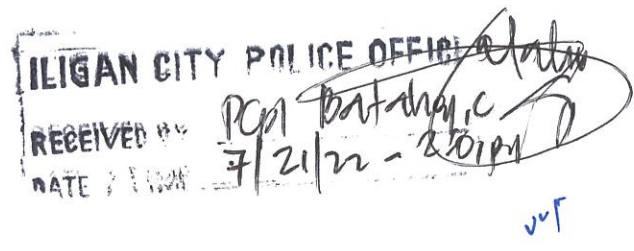 ILIGAN CITY POLICE OFFICE
RECEIVED BY PCpl
DATE / TIME 7/21/22 - 2:01pm